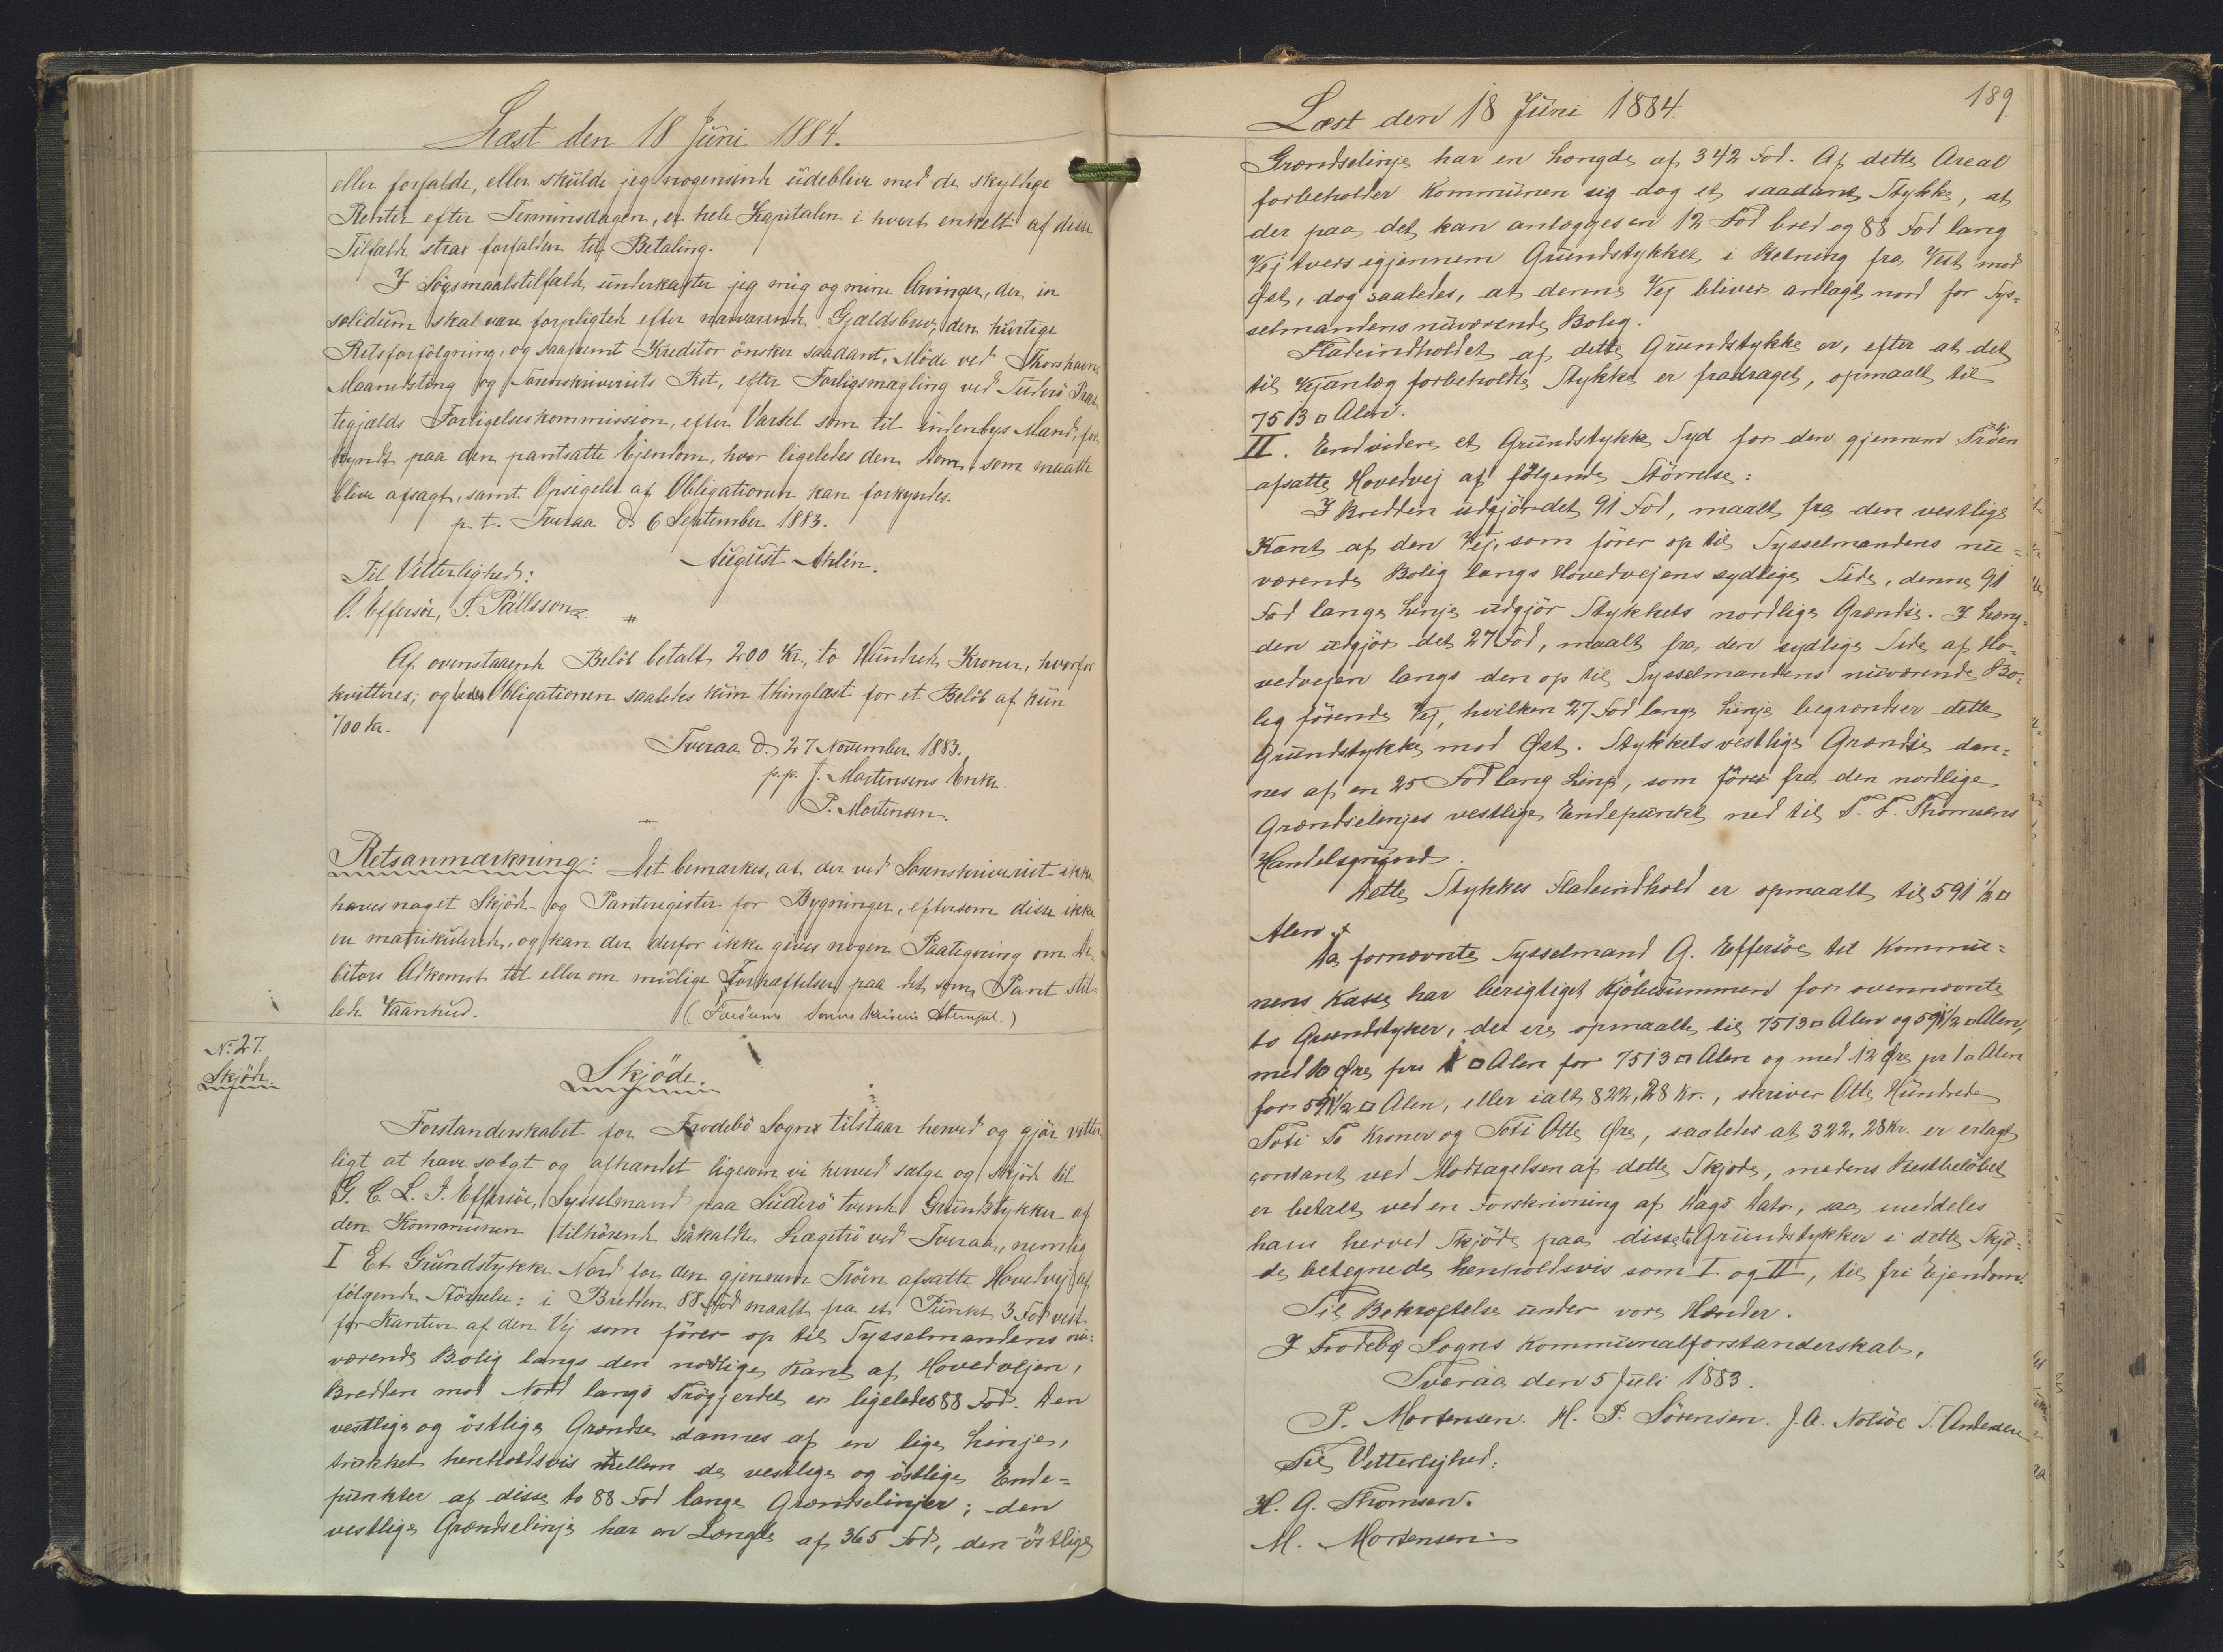 Læst den 18 Juni 1884.
eller forfalde, eller skulde jeg nogensinde udeblive med de skyldige
Renter efter Terminsdagen, er hele Kapitalen i hvert enkelt af disse
Tilfælde strax forfalden til Betaling.
I Søgsmaalstilfælde underkaster jeg mig og mine Arvinger, der in
solidum skal være forpligtede efter nærværende Gjældsbrev, den hurtige
Retsforfölgning, og saafremt Kreditor önsker saadant, Möde ved Thorshavns
Maanedsting og Sorenskriveriets Ret, efter Forligsmægling ved Suderö Præs-
tegjælds Forligelseskommission, efter Varsel som til indenbys Mand, for-
kyndt paa den pantsatte Ejendom, hvor ligeledes den Dom, som maatte
blive afsagt, samt Opsigelse af Obligationen kan forkyndes.
p. t. Tveraa d. 6 September 1883.
August Ahlin.
Til Vitterlighed:
O. Effersöe, S. Pállsson.
Af ovenstaaende Belöb betalt 200 Kr., to Hundrede Kroner, hvorfor
kvitteres; og Obligationen saaledes kun thinglæst for et Belöb af kun
700 Kr.
Tveraa d. 27 November 1883.
p.p. J. Mortensens Enke.
P. Mortensen.
Retsanmærkning: Det bemærkes, at der ved Sorenskriveriet ikke
haves noget Skjöde- og Panteregister for Bygninger, eftersom disse ikke
ere matrikulerede, og kan der derfor ikke gives nogen Paategning om De-
bitors Adkomst til eller om mulige Forhæftelser paa det som Pant stil-
lede Vaanhus.
(Færöernes Sorenskriveris Stempel.)
No. 27.
Skjöde.
Skjöde.
Forstanderskabet for Frodebö Sogn tilstaar herved og gjör vitter-
ligt at have solgt og afhændet ligesom vi herved sælge og skjöde til
G. C. L. J. Effersöe, Sysselmand paa Suderö tvende Grundstykker af
den Kommunen tilhörende såkaldte Lagetrö ved Tveraa, nemlig
I Et Grundstykke Nord for den gjennem Tröen afsatte Hovedvej af
fölgende Störrelse: i Bredden 88 Fod maalt fra et Punkt 3 Fod vest
for Kanten af den Vej som förer op til Sysselmandens nu-
værende Bolig langs den nordlige Kant af Hovedvejen,
Bredden mod Nord langs Trögjerdet er ligeledes 88 Fod. Den
vestlige og östlige Grændse dannes af en lige Linje,
trukket henholdsvis mellem de vestlige og östlige Ende-
punkter af disse to 88 Fod lange Grændselinjer; den
vestlige Grændselinje har en Længde af 365 Fod, den östlige
189.
Læst den 18 Juni 1884.
Grændselinje har en Længde af 342 Fod. Af dette Areal
forbeholder Kommunen sig dog et saadant Stykke, at
der paa det kan anlægges en 12 Fod bred og 88 Fod lang
Vej tvers igjennem Grundstykket i Retning fra Vest mod
Øst, dog saaledes, at denne Vej bliver anlagt nord for Sys-
selmandens nuværende Bolig.
Fladeindholdet af dette Grundstykke er, efter at det
til Vejanlæg forbeholdte Stykke er fradraget, opmaalt til
7513 □ Alen.
II. Endvidere et Grundstykke Syd for den gjennem Tröen
afsatte Hovedvej af fölgende Störrelse:
I Bredden udgjör det 91 Fod, maalt fra den vestlige
Kant af den Vej, som förer op til Sysselmandens nu-
værende Bolig langs Hovedvejens sydlige Side, denne 91
Fod lange Linje udgjör Stykkets nordlige Grændse. I Læng-
den udgjör det 27 Fod, maalt fra den sydlige Side af Ho-
vedvejen langs den op til Sysselmandens nuværende Bo-
lig förende Vej, hvilken 27 Fod lange Linje begrændser dette
Grundstykke mod Øst. Stykkets vestlige Grændse dan-
nes af en 25 Fod lang Linje, som förer fra den nordlige
Grændselinjes vestlige Endepunkt ned til T. F. Thomsens
Handelsgrund.
Dette Stykkes Fladeindhold er opmaalt til 591 1/2 □
Alen.
Da fornævnte Sysselmand G. Effersöe til Kommu-
nens Kasse har berigtiget Kjöbesummen for ovennævnte
to Grundstyker, det ere opmaalte til 7513 □ Alen og 591 1/2 □ Alen,
med 10 Øre pro 1 □ Alen for 7513 □ Alen og med 12 Øre pr 1 □ Alen
for 591 1/2 □ Alen, eller ialt 822,28 Kr., skriver Otte Hundrede
Toti To Kroner og Toti Otte Øre, saaledes at 322,28 Kr. er erlagt
contant ved Modtagelsen af dette Skjöde, medens Restbelöbet
er betalt ved en Forskrivning af Dags Dato, saa meddeles
ham herved Skjöde paa disse to Grundstykker i dette Skjö-
de betegnede henholdsvis som I og II, til fri Ejendom.
Til Bekræftelse under vore Hænder.
I Frodebø Sogns Kommunalforstanderskab,
Tveraa den 5 Juli 1883.
P. Mortensen. H. P. Sörensen. J. A. Nolsöe T. Andersen
Til Vitterlighed:
H. G. Thomsen.
M. Mortensen